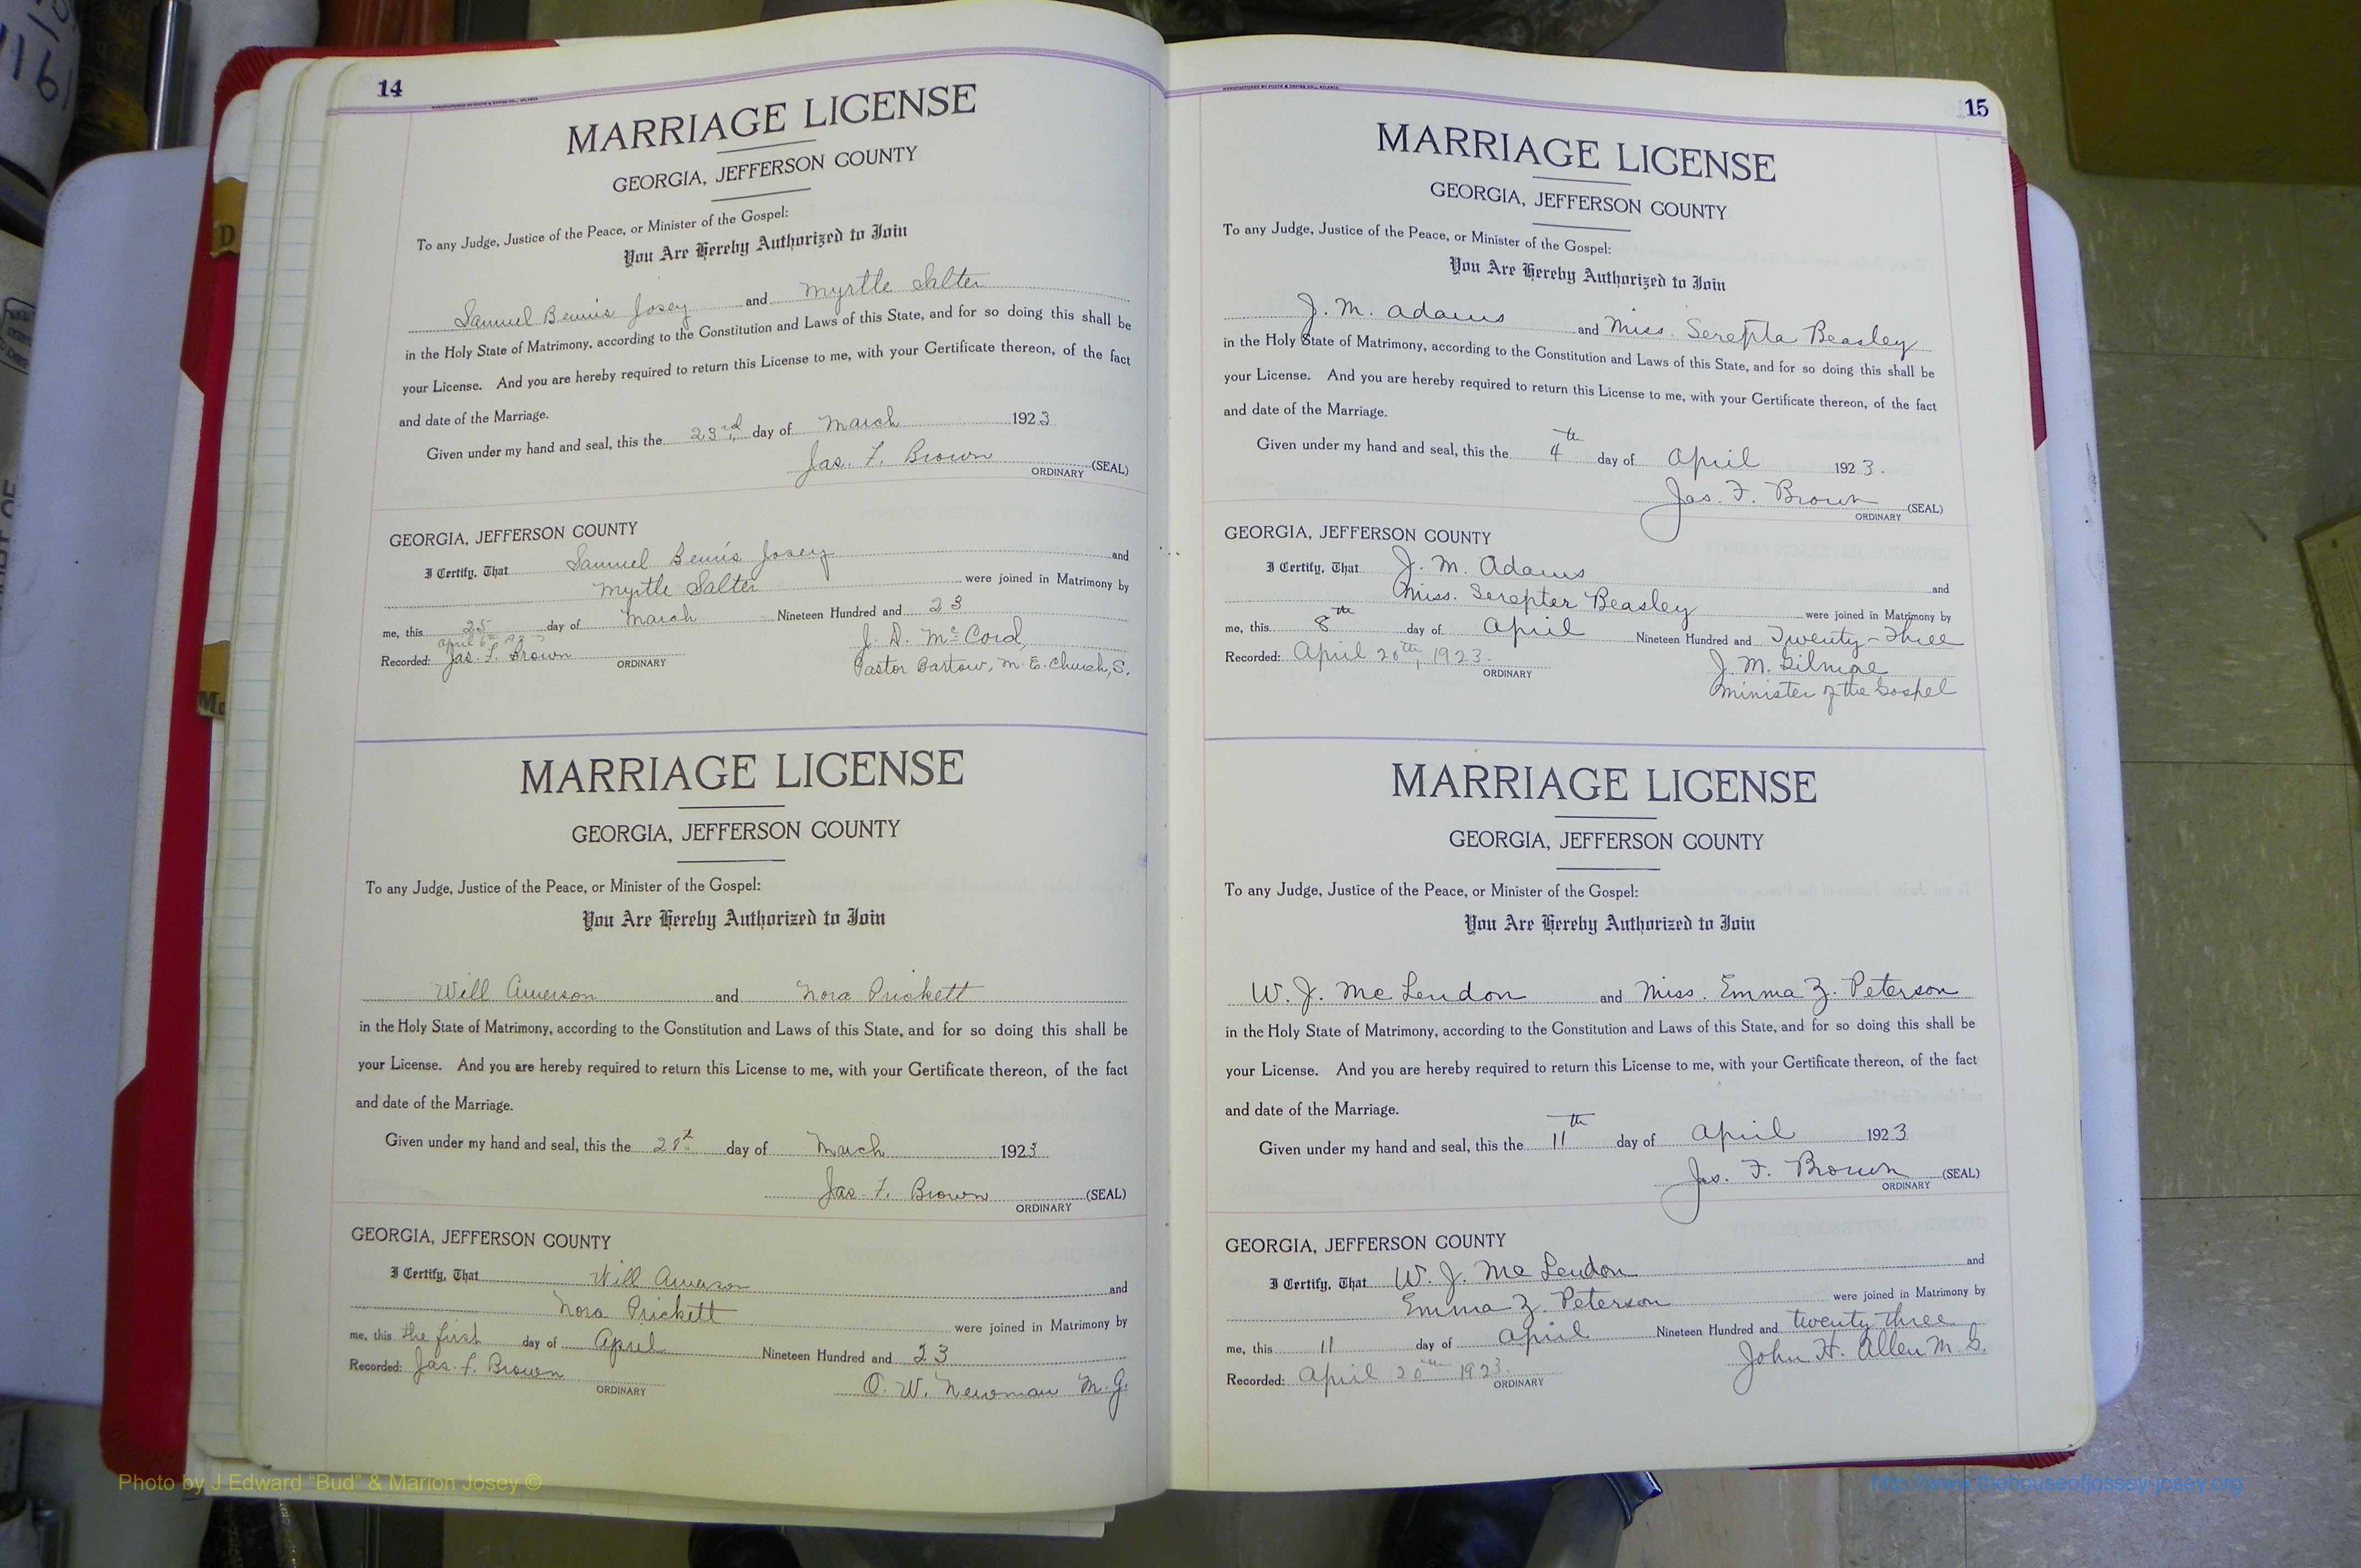 14
MARRIAGE LICENSE
GEORGIA, JEFFERSON COUNTY
To any Judge, Justice of the Peace, or Minister of the Gospel:
You Are Hereby Authorized to Join
Samuel Bemis Josey and Myrtle Salter
in the Holy State of Matrimony, according to the Constitution and Laws of this State, and for so doing this shall be
your License. And you are hereby required to return this License to me, with your Certificate thereon, of the fact
and date of the Marriage.
Given under my hand and seal, this the 23rd day of March 1923
Jas. F. Brown (SEAL)
ORDINARY
GEORGIA, JEFFERSON COUNTY
I Certify, That Samuel Bemis Josey and
Myrtle Salter were joined in Matrimony by
me, this 25 day of March Nineteen Hundred and 23
April 6th 1923
J. D. McCord
Recorded: Jas. F. Brown ORDINARY
Pastor Bartow, M. E. Church, S.
MARRIAGE LICENSE
GEORGIA, JEFFERSON COUNTY
To any Judge, Justice of the Peace, or Minister of the Gospel:
You Are Hereby Authorized to Join
Will Amerson and Nora Prickett
in the Holy State of Matrimony, according to the Constitution and Laws of this State, and for so doing this shall be
your License. And you are hereby required to return this License to me, with your Certificate thereon, of the fact
and date of the Marriage.
Given under my hand and seal, this the day of March 1923
Jas. F. Brown (SEAL)
ORDINARY
GEORGIA, JEFFERSON COUNTY
I Certify, That Will Amerson and
Nora Prickett were joined in Matrimony by
me, this the first day of April Nineteen Hundred and 23
Recorded: Jas. F. Brown ORDINARY
O. W. Newman M.G.
15
MARRIAGE LICENSE
GEORGIA, JEFFERSON COUNTY
To any Judge, Justice of the Peace, or Minister of the Gospel:
You Are Hereby Authorized to Join
J. M. Adams and Miss. Serepta Beasley
in the Holy State of Matrimony, according to the Constitution and Laws of this State, and for so doing this shall be
your License. And you are hereby required to return this License to me, with your Certificate thereon, of the fact
and date of the Marriage.
Given under my hand and seal, this the 4th day of April 1923.
Jas. F. Brown (SEAL)
ORDINARY
GEORGIA, JEFFERSON COUNTY
I Certify, That J. M. Adams and
Miss. Serepter Beasley were joined in Matrimony by
me, this 8th day of April Nineteen Hundred and Twenty-Three
Recorded: April 20th, 1923. ORDINARY
J. M. Gilmore
Minister of the Gospel
MARRIAGE LICENSE
GEORGIA, JEFFERSON COUNTY
To any Judge, Justice of the Peace, or Minister of the Gospel:
You Are Hereby Authorized to Join
W. J. McLendon and Miss. Emma Z. Peterson
in the Holy State of Matrimony, according to the Constitution and Laws of this State, and for so doing this shall be
your License. And you are hereby required to return this License to me, with your Certificate thereon, of the fact
and date of the Marriage.
Given under my hand and seal, this the 11th day of April 1923
Jas. F. Brown (SEAL)
ORDINARY
GEORGIA, JEFFERSON COUNTY
I Certify, That W. J. McLendon and
Emma Z. Peterson were joined in Matrimony by
me, this 11 day of April Nineteen Hundred and twenty three
Recorded: April 20th 1923. ORDINARY
John H. Allen M. G.
Photo by J Edward "Bud" & Marion Josey ©
http://www.thehouseofjossey-josey.org